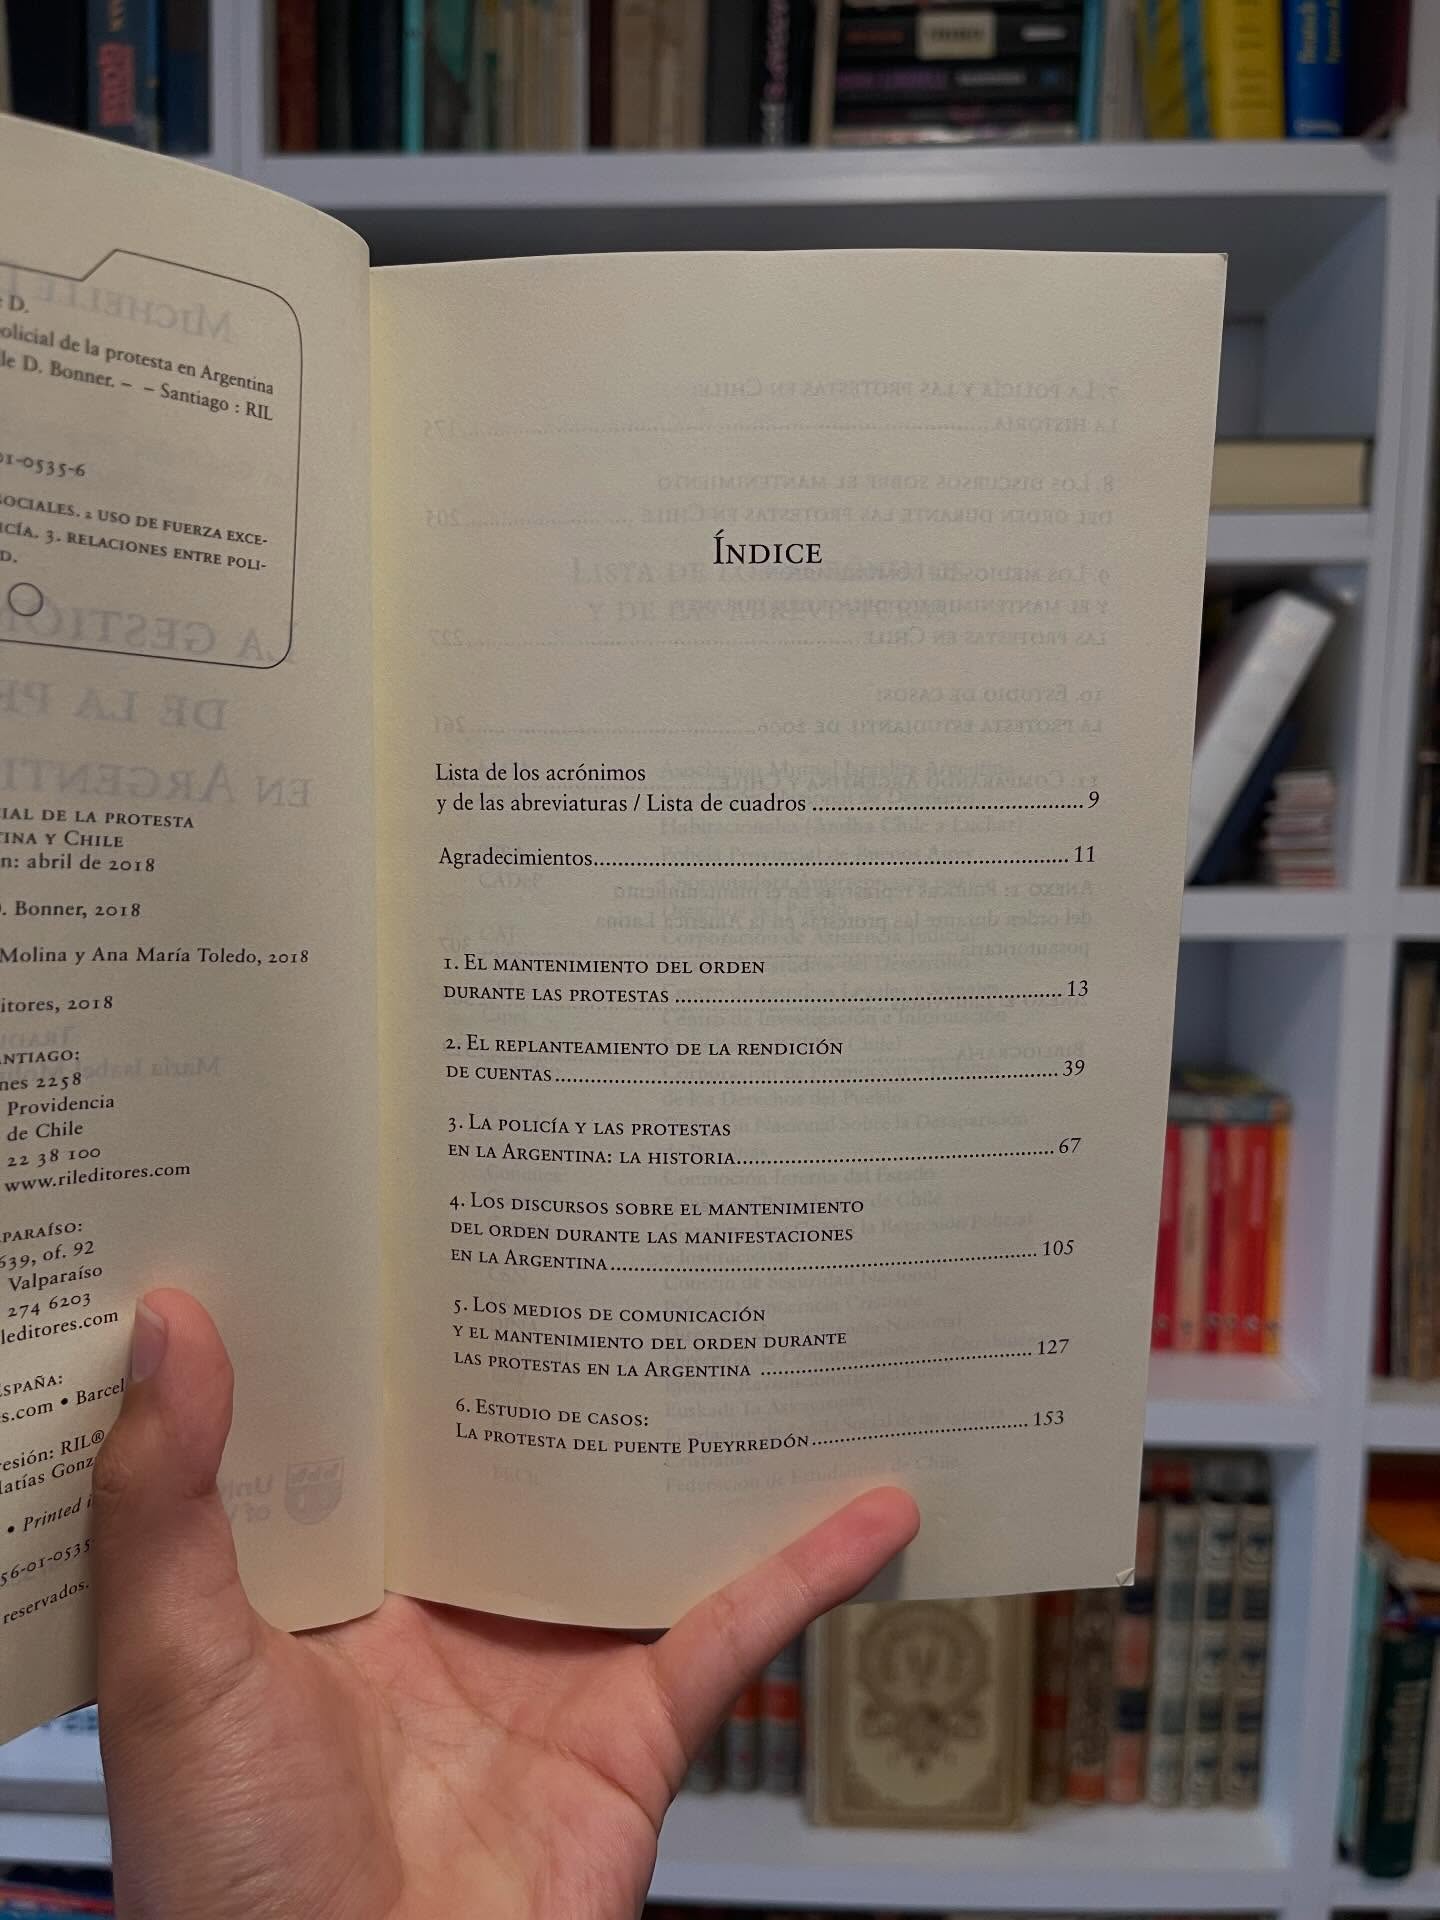 e D.
olicial de la protesta en Argentina
lle D. Bonner. – – Santiago : RIL
01-0535-6
SOCIALES. 2 USO DE FUERZA EXCE-
ICÍA. 3. RELACIONES ENTRE POLI-
D.
IAL DE LA PROTESTA
TINA Y CHILE
n: abril de 2018
D. Bonner, 2018
Molina y Ana María Toledo, 2018
itores, 2018
ANTIAGO:
nes 2258
Providencia
de Chile
22 38 100
www.rileditores.com
PARAÍSO:
639, of. 92
Valparaíso
274 6203
leditores.com
ESPAÑA:
s.com • Barcel
resión: RIL®
Matías Gonz
• Printed i
56-01-0535-
reservados.
Índice
Lista de los acrónimos
y de las abreviaturas / Lista de cuadros ........ 9
Agradecimientos........ 11
1. El mantenimiento del orden
durante las protestas ........ 13
2. El replanteamiento de la rendición
de cuentas........ 39
3. La policía y las protestas
en la Argentina: la historia........ 67
4. Los discursos sobre el mantenimiento
del orden durante las manifestaciones
en la Argentina........ 105
5. Los medios de comunicación
y el mantenimiento del orden durante
las protestas en la Argentina ........ 127
6. Estudio de casos:
La protesta del puente Pueyrredón........ 153